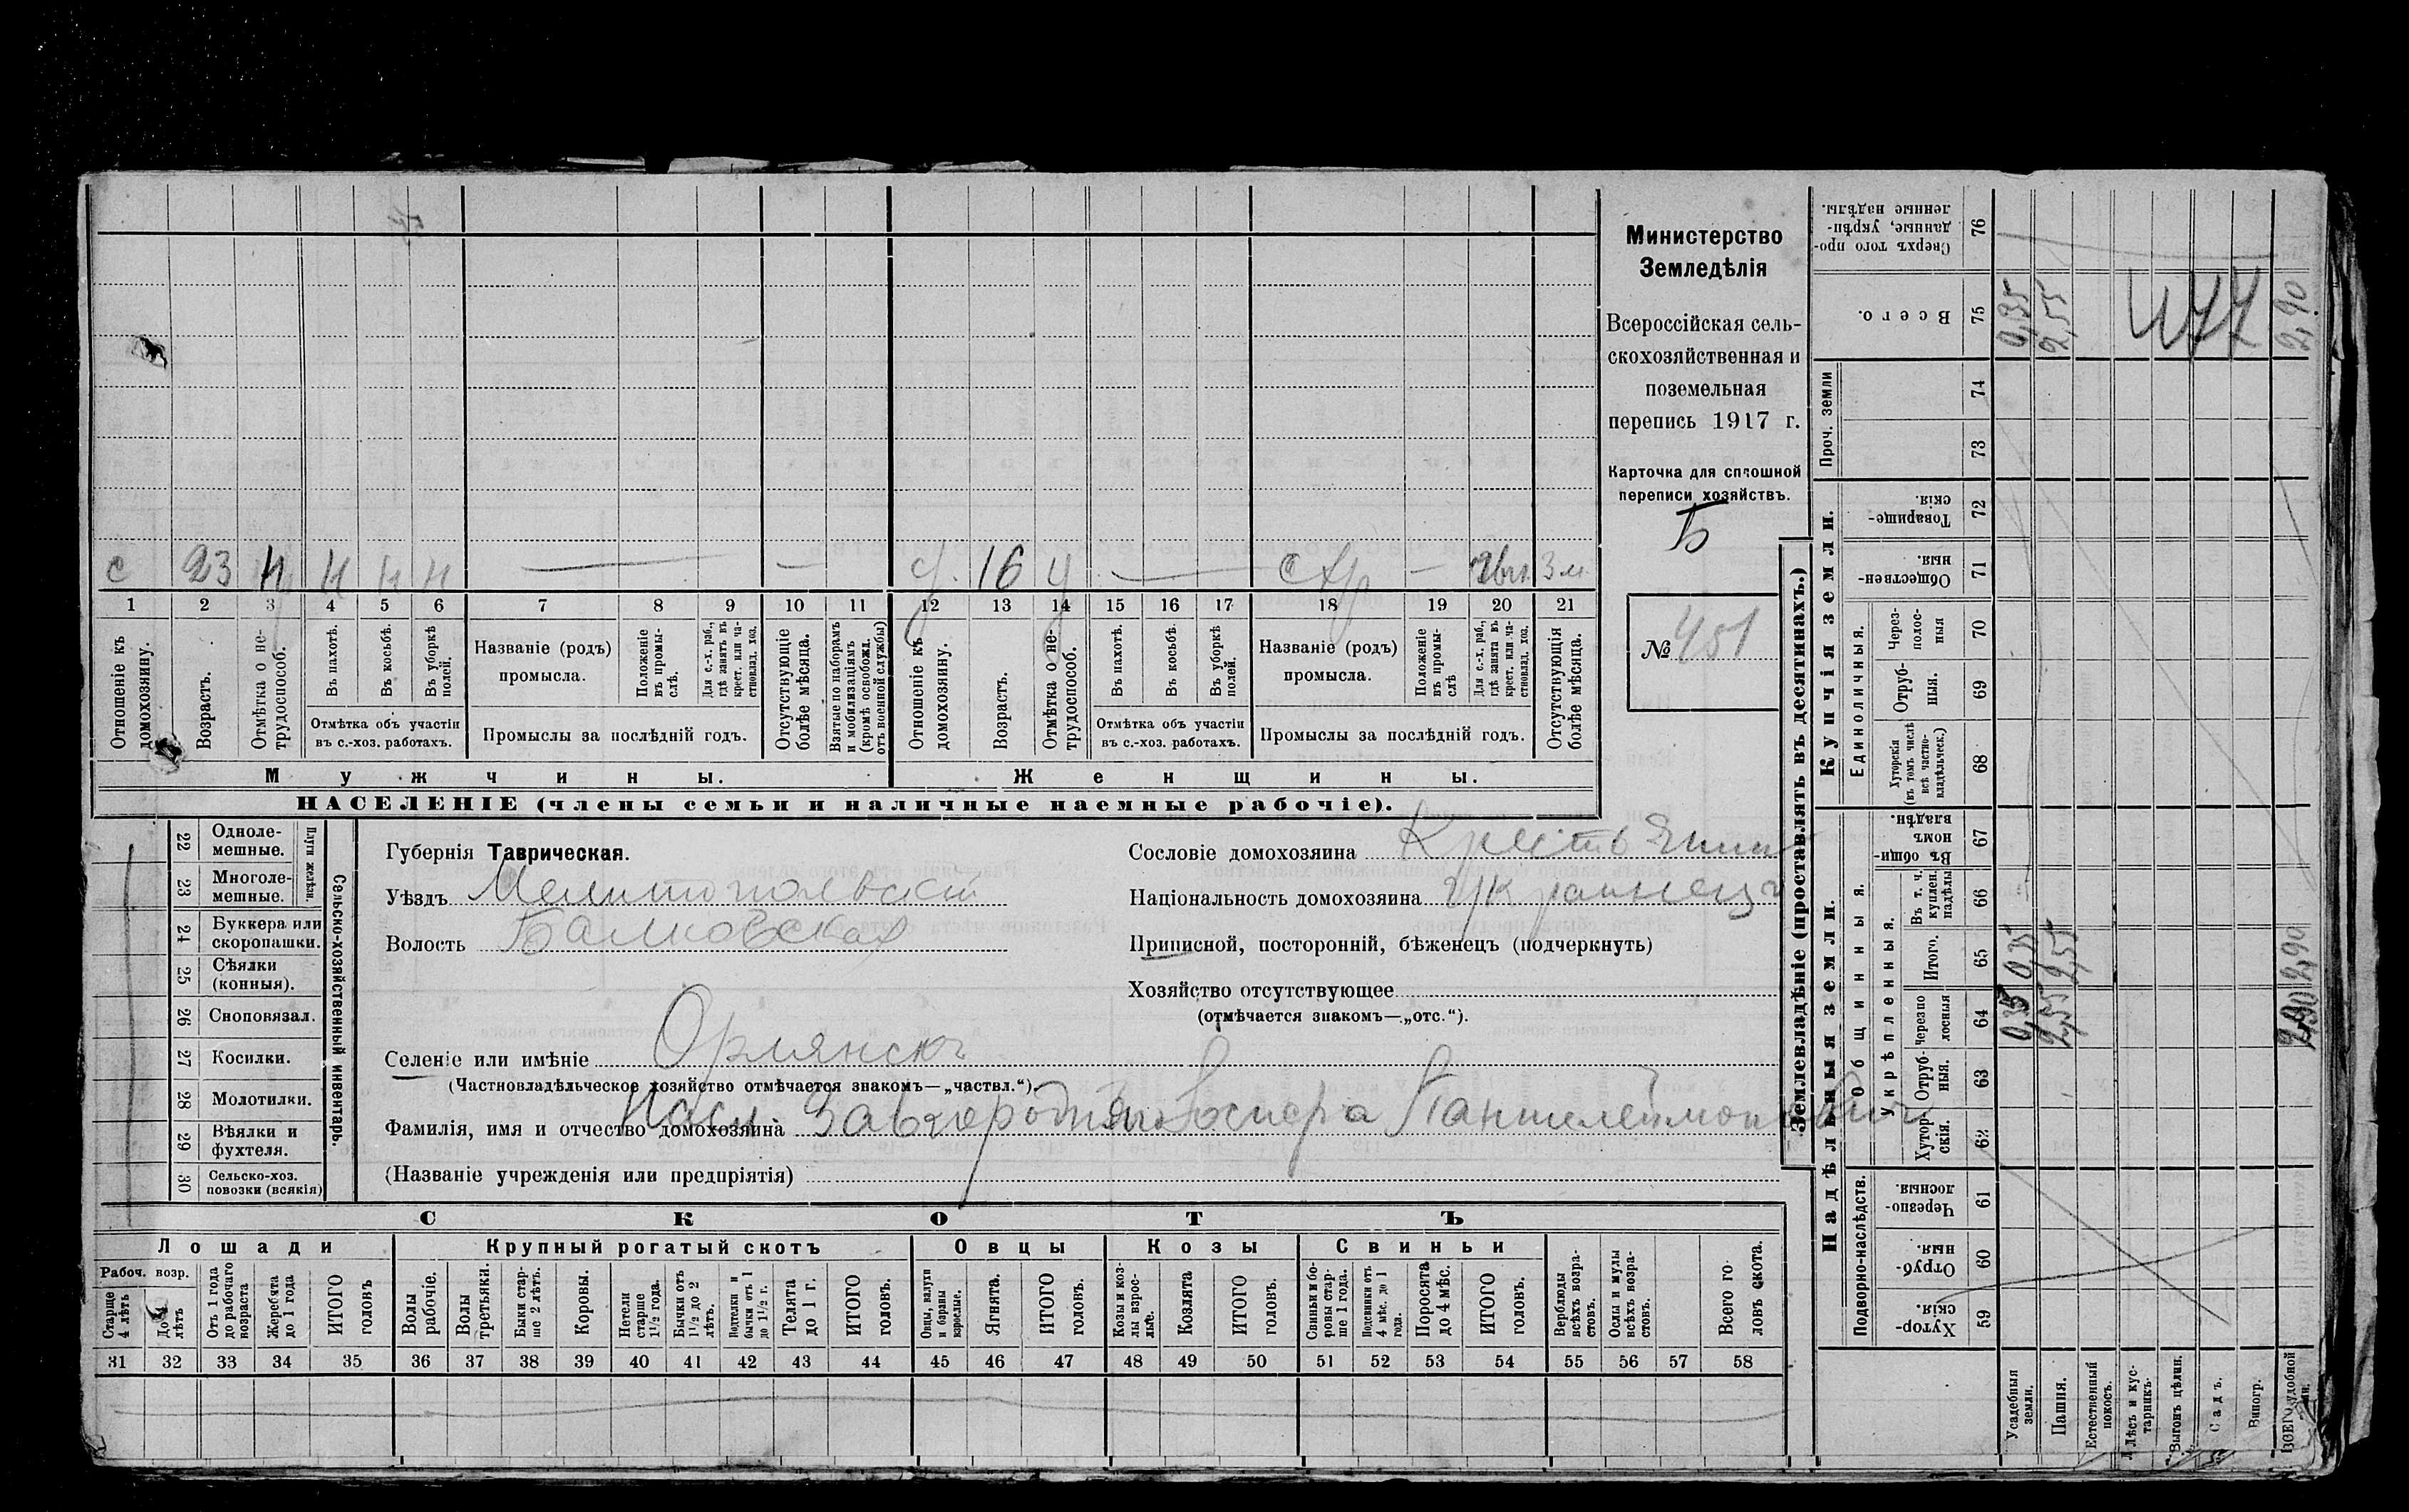 с 23 н н н н — — у. 16 у — с/х р — 3 м
1 2 3 4 5 6 7 8 9 10 11 12 13 14 15 16 17 18 19 20 21
Отношеніе къ домохозяину.
Возрастъ.
Отмѣтка о не-трудоспособ.
Въ пахотѣ.
Въ косьбѣ.
Въ уборкѣ полей.
Отмѣтка объ участіи
въ с.-хоз. работахъ.
Названіе (родъ)
промысла.
Положеніе въ промы-слѣ.
Для с.-х. раб., гдѣ занятъ въ крест. или ча-стновлад. хоз.
Промыслы за послѣдній годъ.
Отсутствующіе болѣе мѣсяца.
Взятые по наборамъ и мобилизаціямъ (кромѣ освобожд. отъ военной службы)
Отношеніе къ домохозяину.
Возрастъ.
Отмѣтка о не-трудоспособ.
Въ пахотѣ.
Въ косьбѣ.
Въ уборкѣ полей.
Отмѣтка объ участіи
въ с.-хоз. работахъ.
Названіе (родъ)
промысла.
Положеніе въ промы-слѣ
Для с.-х. раб., гдѣ занята въ крест. или ча-стновлад. хоз.
Промыслы за послѣдній годъ.
Отсутствующія болѣе мѣсяца.
Мужчины.
Женщины.
НАСЕЛЕНІЕ (члены семьи и наличные наемные рабочіе).
Министерство
Земледѣлія
Всероссійская сель-
скохозяйственная и
поземельная
перепись 1917 г.
Карточка для сплошной
переписи хозяйствъ.
Б
№ 451
22 Однолемешные.
23 Многолемешные.
Плуги желѣзн.
24 Буккера или скоропашки.
25 Сѣялки (конныя).
26 Сноповязал.
27 Косилки.
28 Молотилки.
29 Вѣялки и фухтеля.
30 Сельско-хоз. повозки (всякія)
Сельско-хозяйственный инвентарь.
Губернія Таврическая.
Уѣздъ Мелитопольскій
Волость Балковская
Селеніе или имѣніе Орлянскъ
(Частновладѣльческое хозяйство отмѣчается знакомъ—„частвл.“)
Фамилія, имя и отчество домохозяина Насл. Завгородняго Пантелеймонович
(Названіе учрежденія или предпріятія)
Сословіе домохозяина Крестьянин
Національность домохозяина Украинецъ
Приписной, посторонній, бѣженецъ (подчеркнуть)
Хозяйство отсутствующее
(отмѣчается знакомъ—„отс.“).
СКОТЪ
Лошади
Крупный рогатый скотъ
Овцы
Козы
Свиньи
Рабоч. возр.
Старше 4 лѣтъ
До 4 лѣтъ
Отъ 1 года до рабочаго возраста
Жеребята до 1 года
ИТОГО головъ
Волы рабочіе.
Волы третьяки.
Быки стар-ше 2 лѣтъ.
Коровы.
Нетели старше 1½ года.
Бычки отъ 1½ до 2 лѣтъ.
Подтелки и бычки отъ 1 до 1½ г.
Телята до 1 г.
ИТОГО головъ.
Овцы, валухи и бараны взрослые.
Ягнята.
ИТОГО головъ.
Козы и коз-лы взрос-лые.
Козлята
ИТОГО головъ.
Свиньи и бо-ровы стар-ше 1 года.
Подсвинки отъ 4 мѣс. до 1 года.
Поросята до 4 мѣс.
ИТОГО головъ.
Верблюды всѣхъ возра-стовъ.
Ослы и мулы всѣхъ возра-стовъ.
Всего го-ловъ скота.
31 32 33 34 35 36 37 38 39 40 41 42 43 44 45 46 47 48 49 50 51 52 53 54 55 56 57 58
Землевладѣніе (проставлять въ десятинахъ.)
Надѣльныя земли.
Купчія земли.
Проч. земли
Подворно-наслѣдств.
Общинныя.
Укрѣпленныя.
Единоличныя.
Сверхъ того про-данные, укрѣп-ленные надѣлы. 76
Всего. 75 0,35 2,55 477 2,90
74
73
Товарище-скія. 72
Обществен-ныя. 71
Черезполос-ныя 70
Отруб-ныя. 69
Хуторскія (въ томъ числѣ всѣ частно-владѣльческ.) 68
Въ общин-номъ владѣн. 67
Въ т. ч. куплен. надѣлы 66
Итого. 65 0,35 2,55 2,90
Черезпо лосныя 64 0,35 2,55 2,90
Отруб-ныя. 63
Хутор-скія. 62
Черезпо-лосныя. 61
Отруб-ныя. 60
Хутор-скія. 59
Усадебныя земли.
Пашня.
Естественный покосъ.
Лѣсъ и кус-тарникъ.
Выгонъ цѣлин.
Садъ.
Виногр.
ВСЕГО удобной